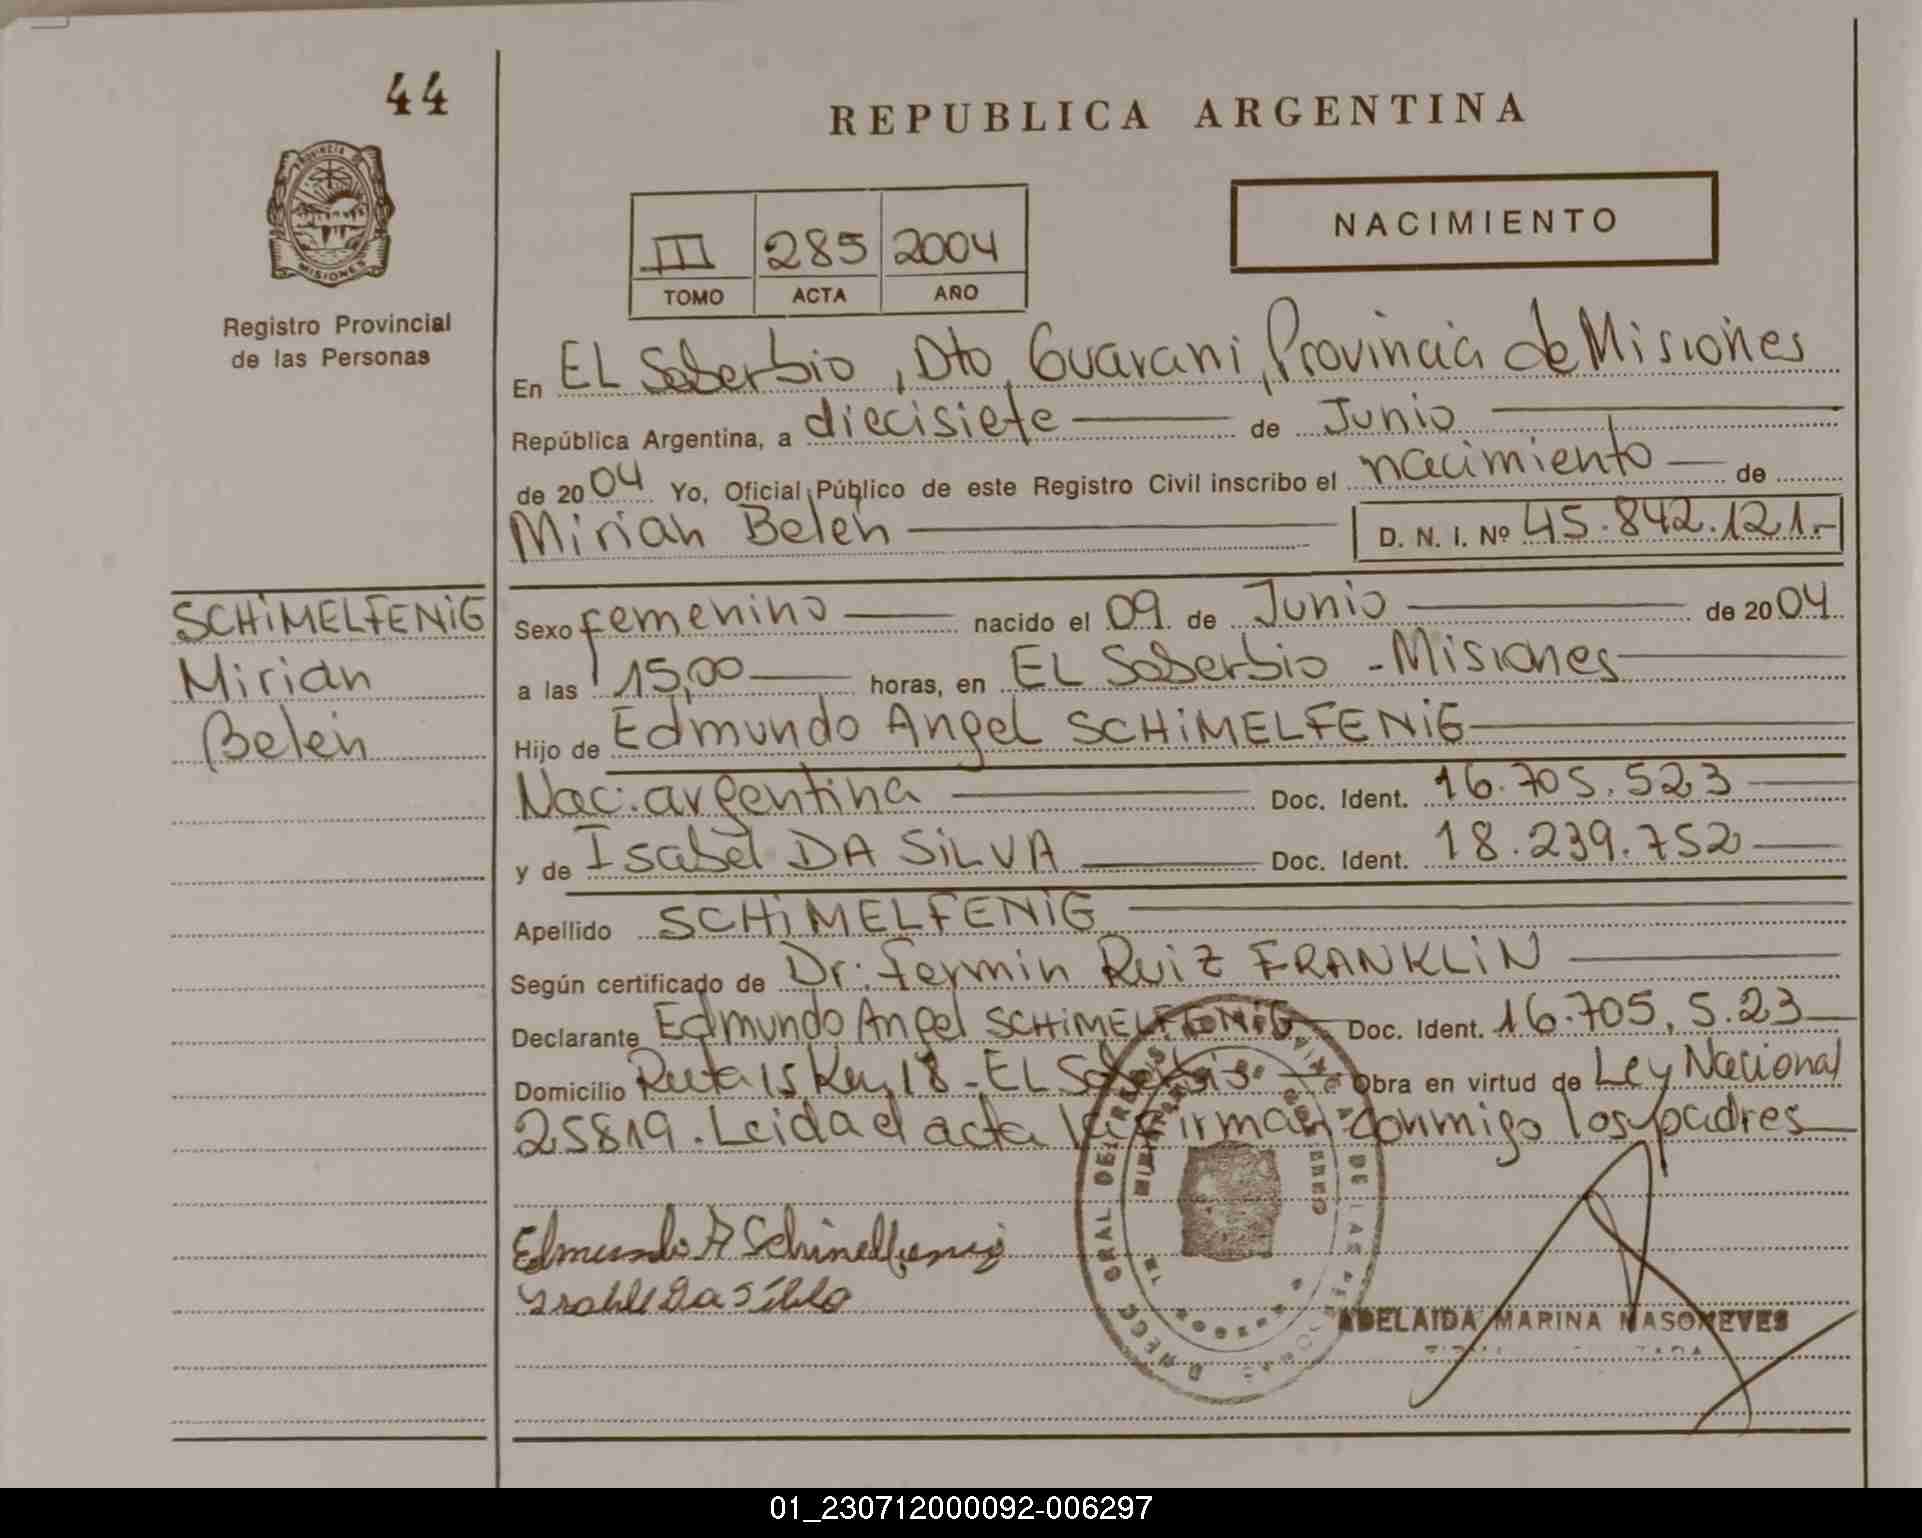 44
REPUBLICA ARGENTINA
PROVINCIA DE
MISIONES
Registro Provincial
de las Personas
III 285 2004
TOMO ACTA AÑO
NACIMIENTO
En EL Soberbio, Dto, Guarani, Provincia de Misiones
República Argentina, a diecisiete de Junio
de 2004 Yo, Oficial Público de este Registro Civil inscribo el nacimiento de
Mirian Belen D. N. I. Nº 45.842.121.-
SCHiMELFENiG
Mirian
Belen
Sexo femenino nacido el 09 de Junio de 2004
a las 15,00 horas, en EL Soberbio - Misiones
Hijo de Edmundo Angel SCHiMELFENiG
Nac: argentina Doc. Ident. 16.705.523
y de Isabel DA SiLVA Doc. Ident. 18.239.752
Apellido SCHiMELFENiG
Según certificado de Dr: Fermin Ruiz FRANKLiN
Declarante Edmundo Angel SCHiMELFENiG Doc. Ident. 16.705.523
Domicilio Ruta 15 Km 18 - EL Soberbio Obra en virtud de Ley Nacional
25819. Leida el acta la firman conmigo los padres
Edmundo A Schimelfenig
DE LAS
ADELAIDA MARINA MASONEVES
01_230712000092-006297